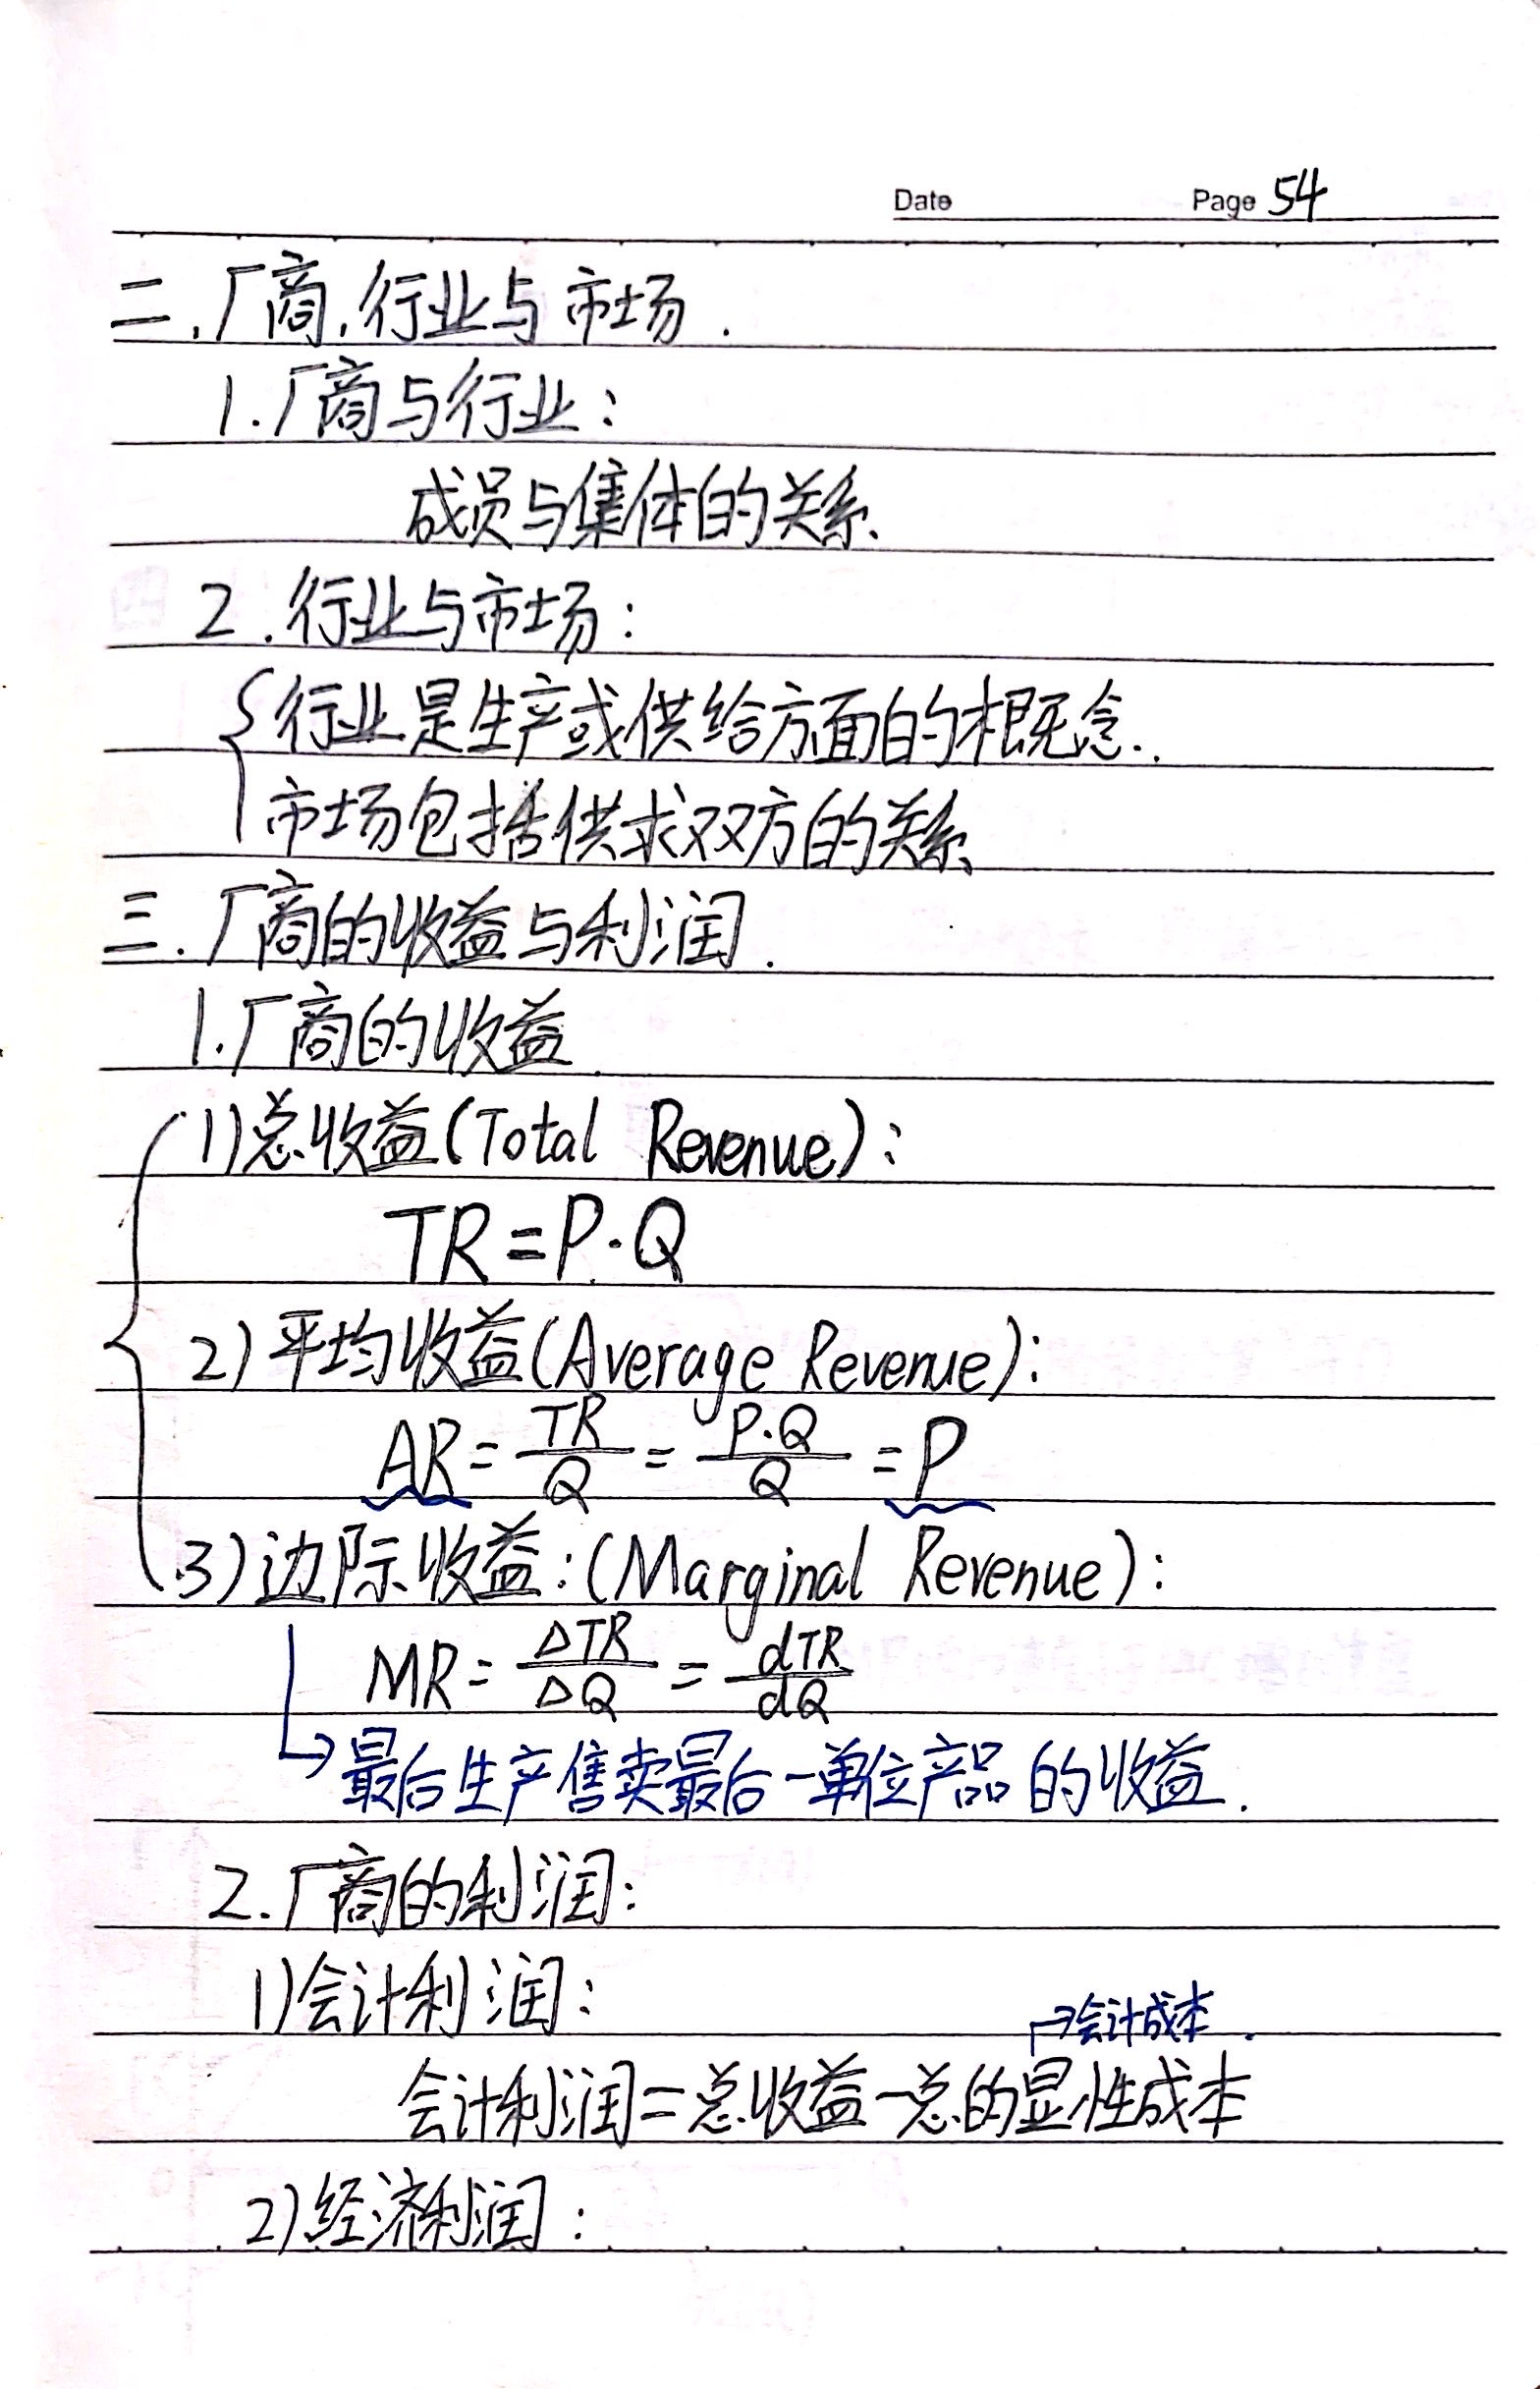 Date Page 54
二.厂商.行业与市场.
1.厂商与行业:
成员与集体的关系.
2.行业与市场:
行业是生产或供给方面的概念.
市场包括供求双方的关系
三.厂商的收益与利润.
1.厂商的收益
1)总收益(Total Revenue):
TR=P·Q
2)平均收益(Average Revenue):
AR=TR/Q=P·Q/Q=P
3)边际收益:(Marginal Revenue):
MR=ΔTR/ΔQ=dTR/dQ
→最后生产售卖最后一单位产品的收益.
2.厂商的利润:
1)会计利润:
→会计成本.
会计利润=总收益-总的显性成本
2)经济利润: